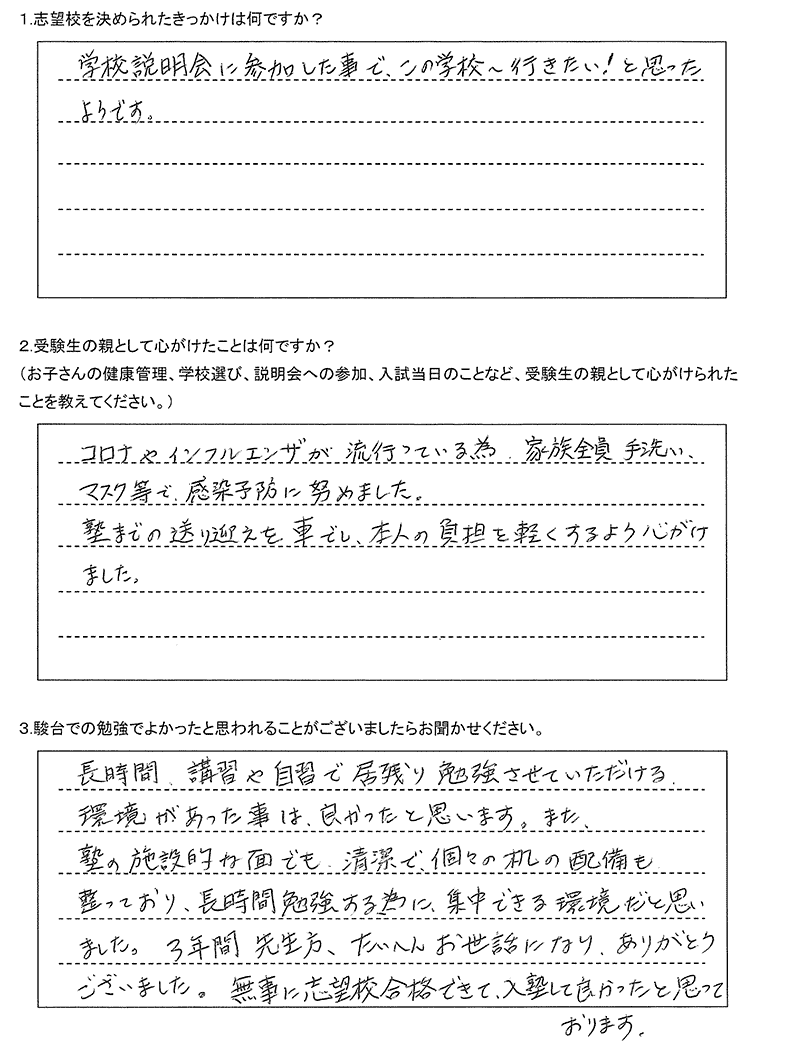 1.志望校を決められたきっかけは何ですか？
学校説明会に参加した事で、この学校へ行きたい！と思った
ようです。
2.受験生の親として心がけたことは何ですか？
（お子さんの健康管理、学校選び、説明会への参加、入試当日のことなど、受験生の親として心がけられた
ことを教えてください。）
コロナやインフルエンザが流行っている為、家族全員手洗い、
マスク等で、感染予防に努めました。
塾までの送り迎えを車でし、本人の負担を軽くするよう心がけ
ました。
3.駿台での勉強でよかったと思われることがございましたらお聞かせください。
長時間、講習や自習で居残り勉強させていただける
環境があった事は、良かったと思います。また、
塾の施設的な面でも、清潔で、個々の机の配備も
整っており、長時間勉強する為に、集中できる環境だと思い
ました。3年間先生方、たいへんお世話になり、ありがとう
ございました。無事に志望校合格できて、入塾して良かったと思って
おります。